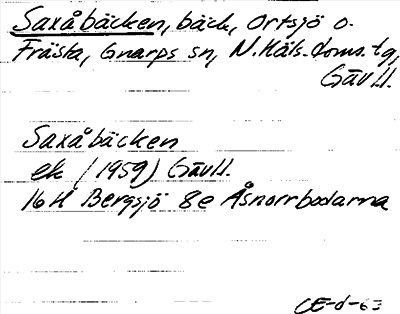 Saxåbäcken, bäck, Ortsjö o.
Frästa, Gnarps sn, N. Häls. doms. tg,
Gävl l.
Saxåbäcken
ek (1959) Gävl l.
16H Bergsjö 8e Åsnorrbodarna
CE-d-63